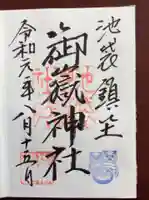 池袋鎮坐
御嶽神社
令和元年八月十五日